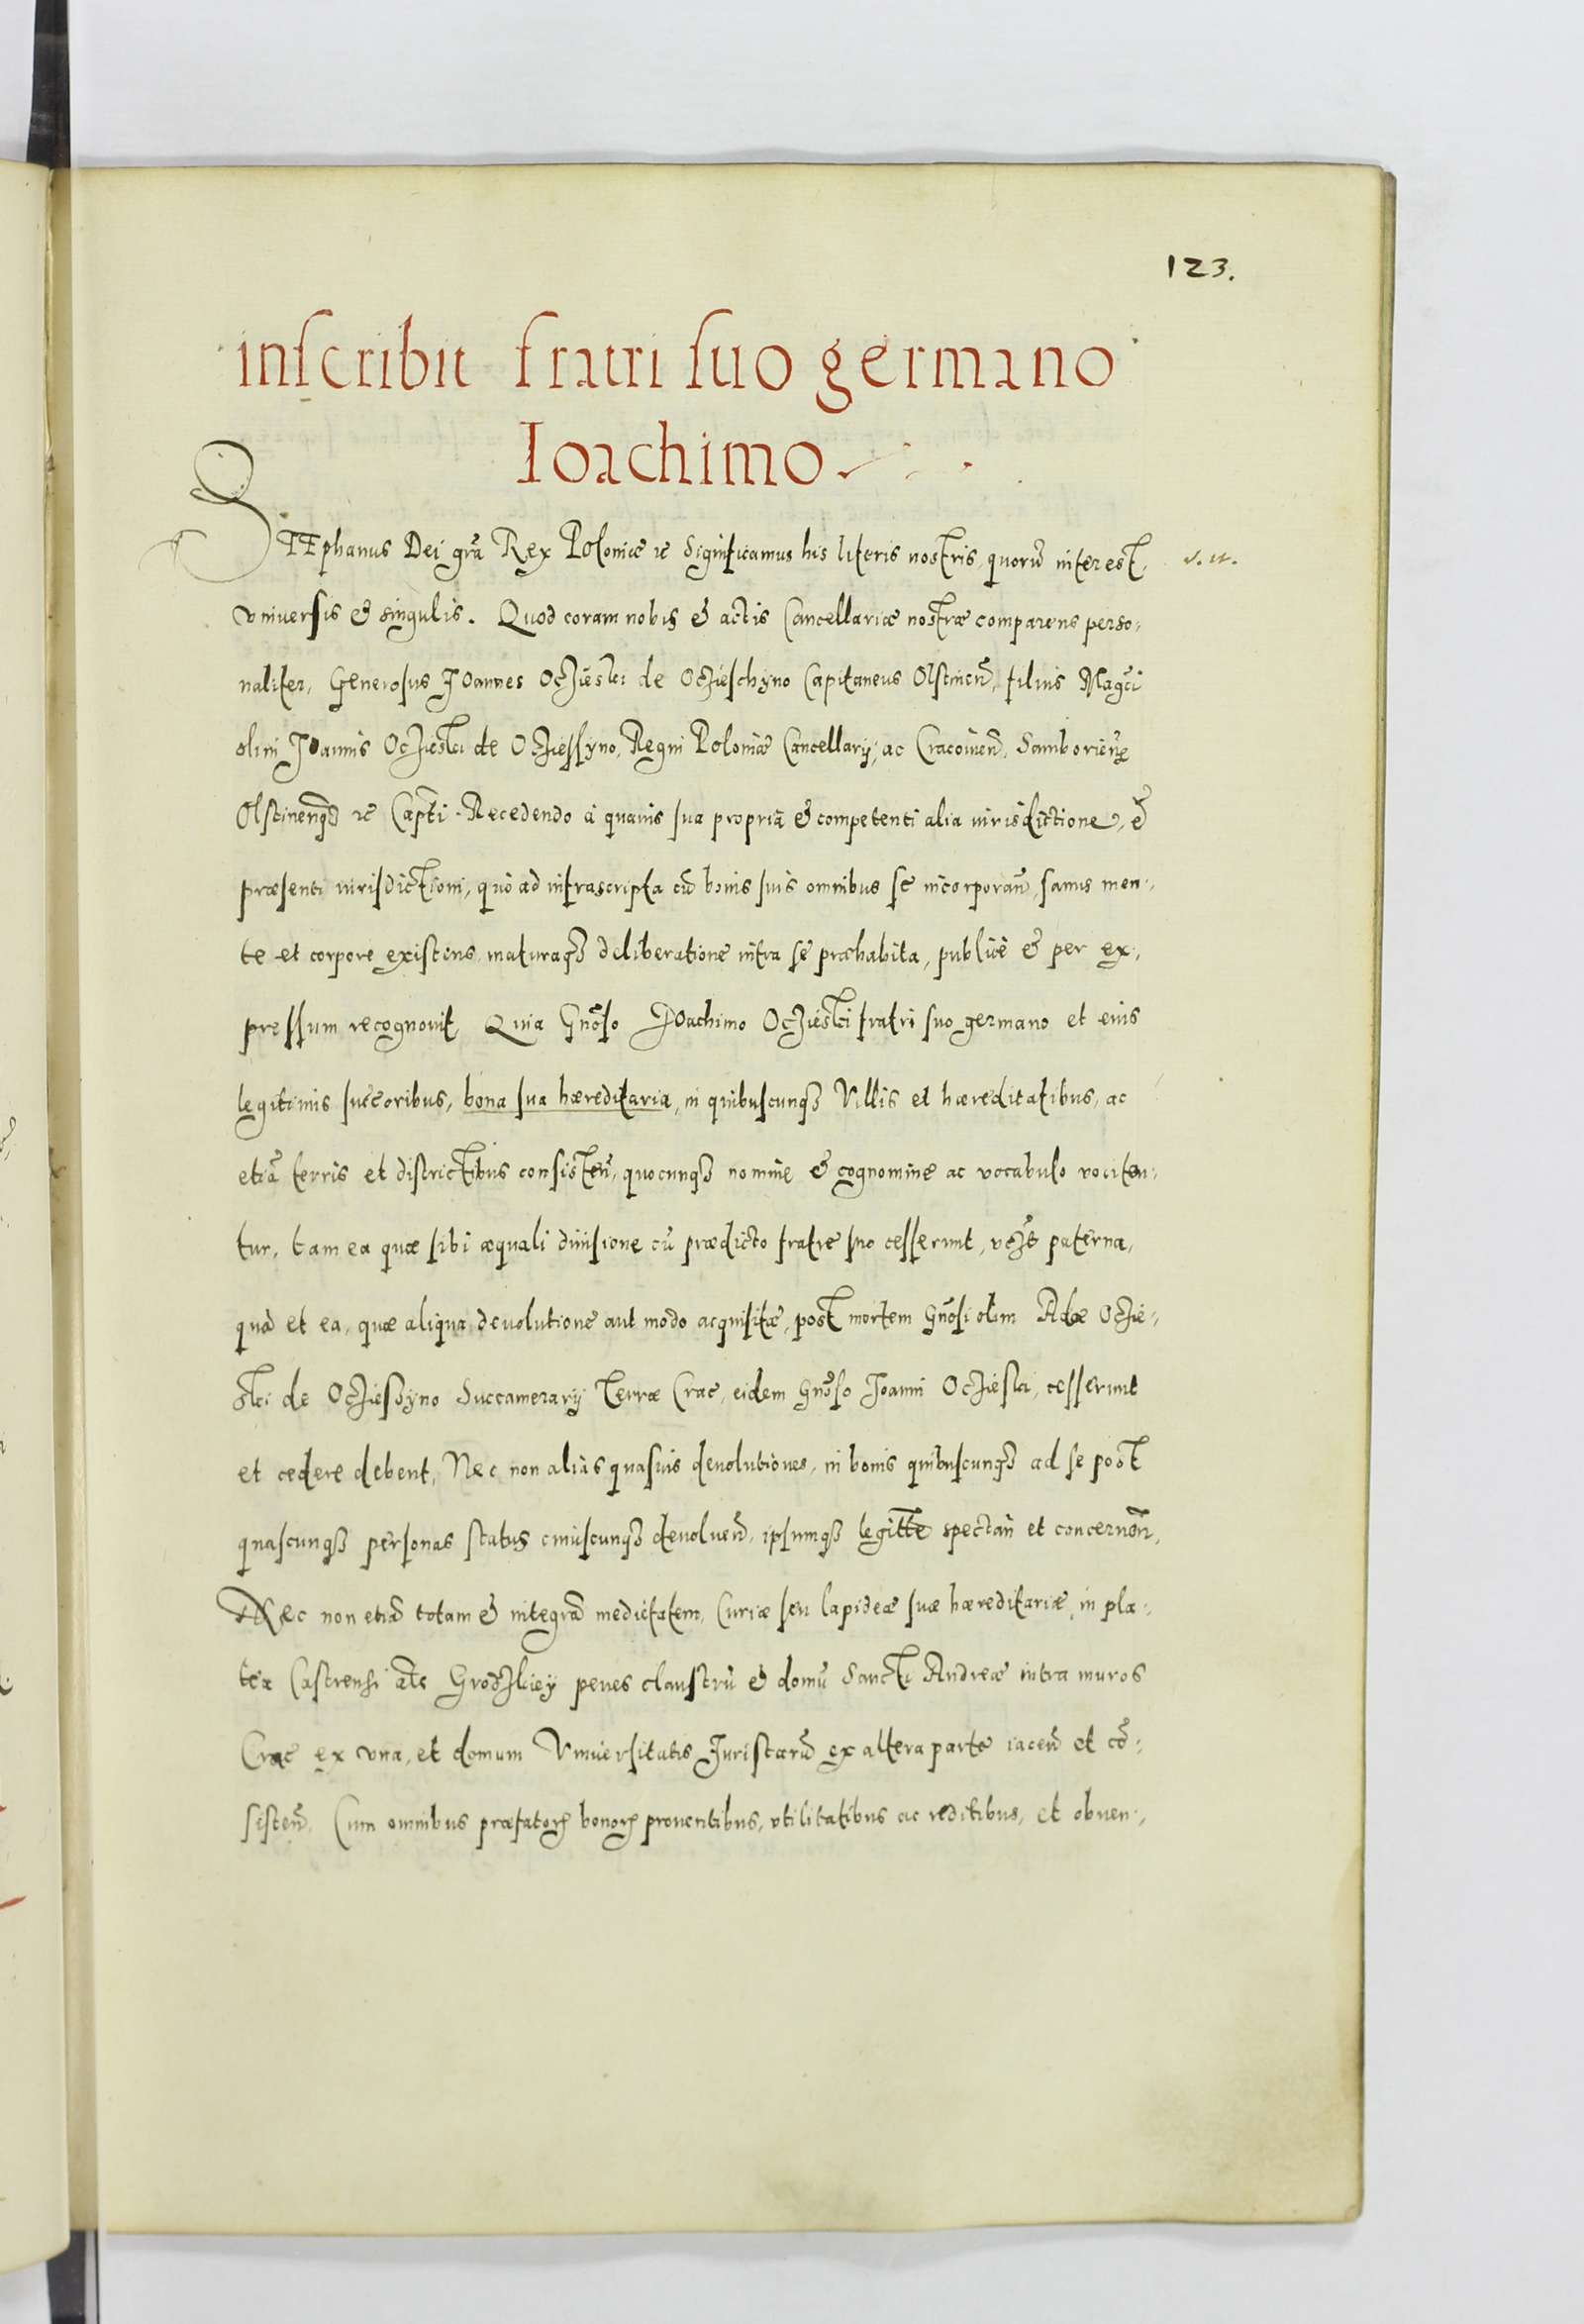 123.
inscribit fratri suo germano
Ioachimo
STEphanus Dei grã Rex Poloniæ &c Significamus his literis nostris, quorũ interest,
vniuersis & singulis. Quod coram nobis & actis Cancellariæ nostræ comparens perso-
naliter, Generosus Joannes Oczieski de Oczieschyno Capitaneus Olstineñ, filius Magci
olim Joannis Oczieski de Oczieschyno, Regni Poloniæ Cancellarij, ac Cracovieñ, Samborieñ
Olstineñq3 &c Capti. Recedendo à quavis sua propria & competenti alia iurisdictione, &
præsenti iurisdictioni, quò ad infrascripta cũ bonis suis omnibus se incorporañ, sanus men-
te et corpore existens, maturaq3 deliberatione intra se præhabita, publicè & per ex-
pressum recognovit, Quia Gnõso Joachimo Oczieski fratri suo germano et eius
legitimis succoribus, bona sua hæreditaria, in quibuscunq3 Villis et hæreditatibus, ac
etiã terris et districtibus consisteñ, quocunq3 nomine & cognomine ac vocabulo vociten-
tur, tam ea quæ sibi æquali diuisione cũ prædicto fratre suo cesserunt, vczt paterna,
quã et ea, quæ aliqua deuolutione aut modo acquisitæ, post mortem Gnõsi olim Adæ Oczie-
ski de Oczieschyno Succamerarij Terræ Crac, eidem Gnõso Joanni Oczieski, cesserunt
et cedere debent, Nec non aliàs quasuis deuolutiones, in bonis quibuscunq3 ad se post
quascunq3 personas status cuiuscunq3 deuolueñ, ipsumq3 legitte spectañ et concerneñ,
Nec non etiã totam & integrã medietatem, Curiæ seu lapideæ suæ hæreditariæ, in pla-
tea Castrensi als Grodzkiey penes claustrũ & domũ Sancti Andreæ intra muros
Crac ex vna, et domum Vniuersitatis Juristarũ ex altera parte iaceñ et cõ-
sisteñ, Cum omnibus præfatorũ bonorũ prouentibus, vtilitatibus ac reditibus, et obuen-